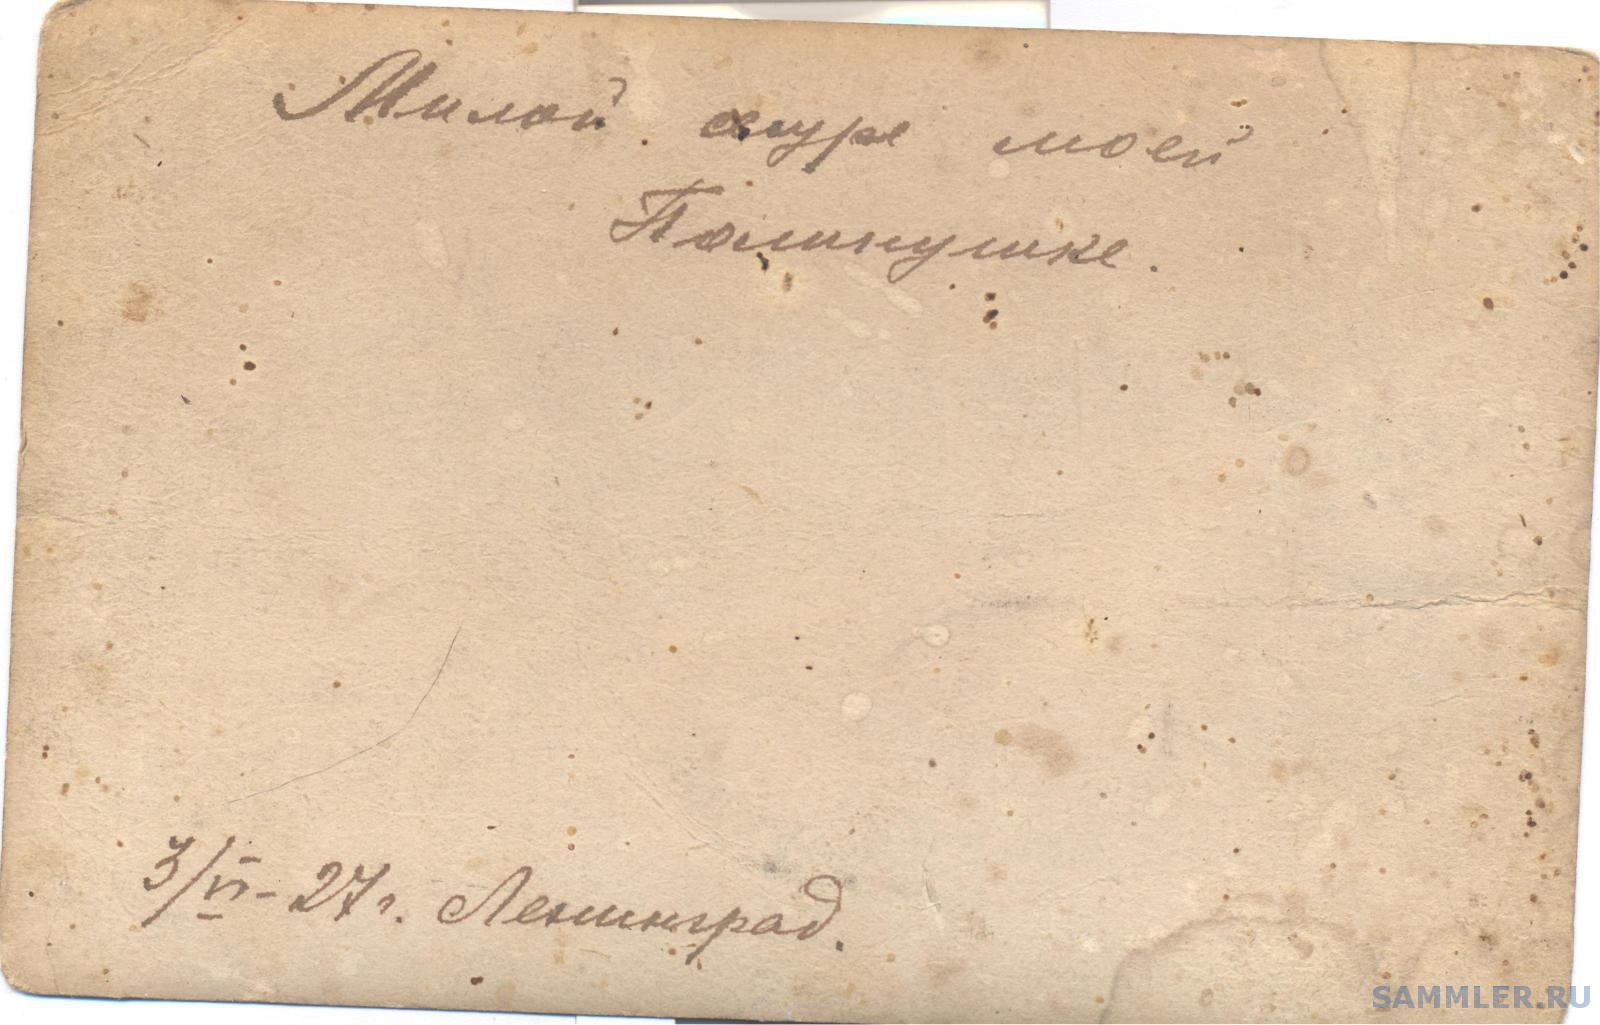 Милой муре моей
Полинушке.
3/VI-27г. Ленинград.
SAMMLER.RU